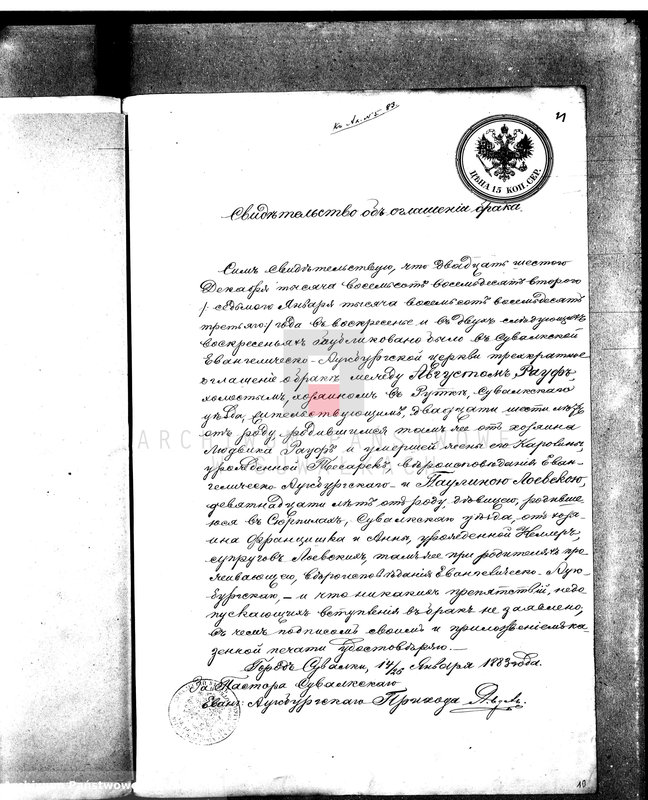 Къ Ак. №5 83.
21
ЦѢНА 15 КОП. СЕР.
Свидѣтельство объ оглашеніи брака.
Симъ свидѣтельствую, что двадцать шестого
Декабря тысяча восемьсотъ восемьдесятъ второго
/: седьмого Января тысяча восемьсотъ восемьдесятъ
третьяго/ года въ воскресенье и въ двухъ слѣдующихъ
воскресеньяхъ публиковано было въ Сувалкской
Евангелическо-Аугсбургской церкви троекратное
оглашеніе о бракѣ между Августомъ Рауфъ,
холостымъ, хозяиномъ въ Руткѣ, Сувалкскаго
уѣзда, жительствующимъ, двадцати шести лѣтъ
отъ роду, родившимся тамъ же отъ хозяина
Людвика Рауфъ и умершей жены его Каролины,
урожденной Тессарекъ, вѣроисповѣданія Еван-
гелическо Аугсбургскаго – и Паулиною Лоевскою,
девятнадцати лѣтъ отъ роду, дѣвицею, родивше-
юся въ Сюрпилахъ, Сувалкскаго уѣзда, отъ хозя-
ина Францишка и Анны, урожденной Кемлеръ,
супруговъ Лоевскихъ, тамъ же при родителяхъ про-
живающею, вѣроисповѣданія Евангелическо-Ауг-
бургскаго, – и что никакихъ препятствій, недо-
пускающихъ вступленія въ бракъ не заявлено,
въ чемъ подписомъ своимъ и приложеніемъ ка-
зенной печати удостовѣряю. –
Городъ Сувалки, 14/26 Января 1883 года.
За Пастора Сувалкскаго
Еванг: Аугсбургскаго Прихода
Archiwum Państwowe
10